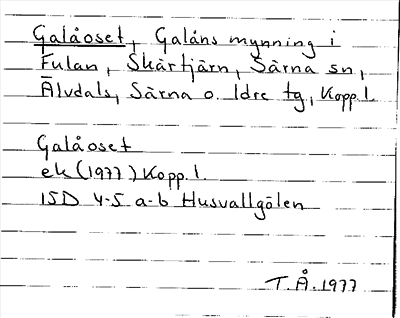 Galåoset, Galåns mynning i
Fulan, Skärtjärn, Särna sn,
Älvdals, Särna o. Idre tg, Kopp. l.
Galåoset
ek (1977) Kopp. l.
15D 4-5 a-b Husvallgölen
T. Å. 1977